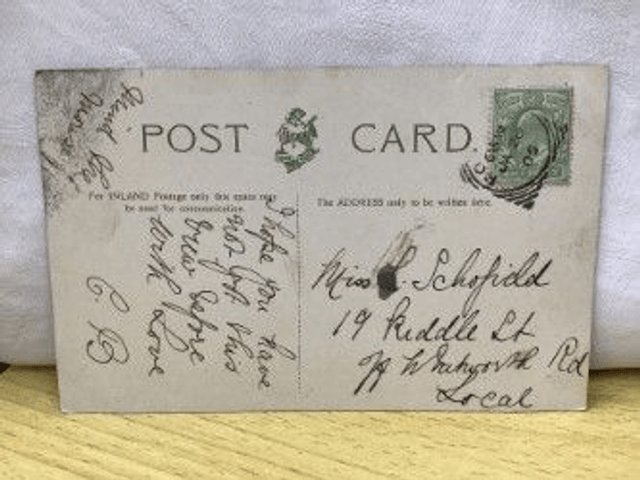 POST CARD.
For INLAND Postage only this space may
be used for communication.
The ADDRESS only to be written here.
I hope you have
not got this
view before
with love
C B
Miss L. Schofield
19 Riddle St
off Whitworth Rd
Local